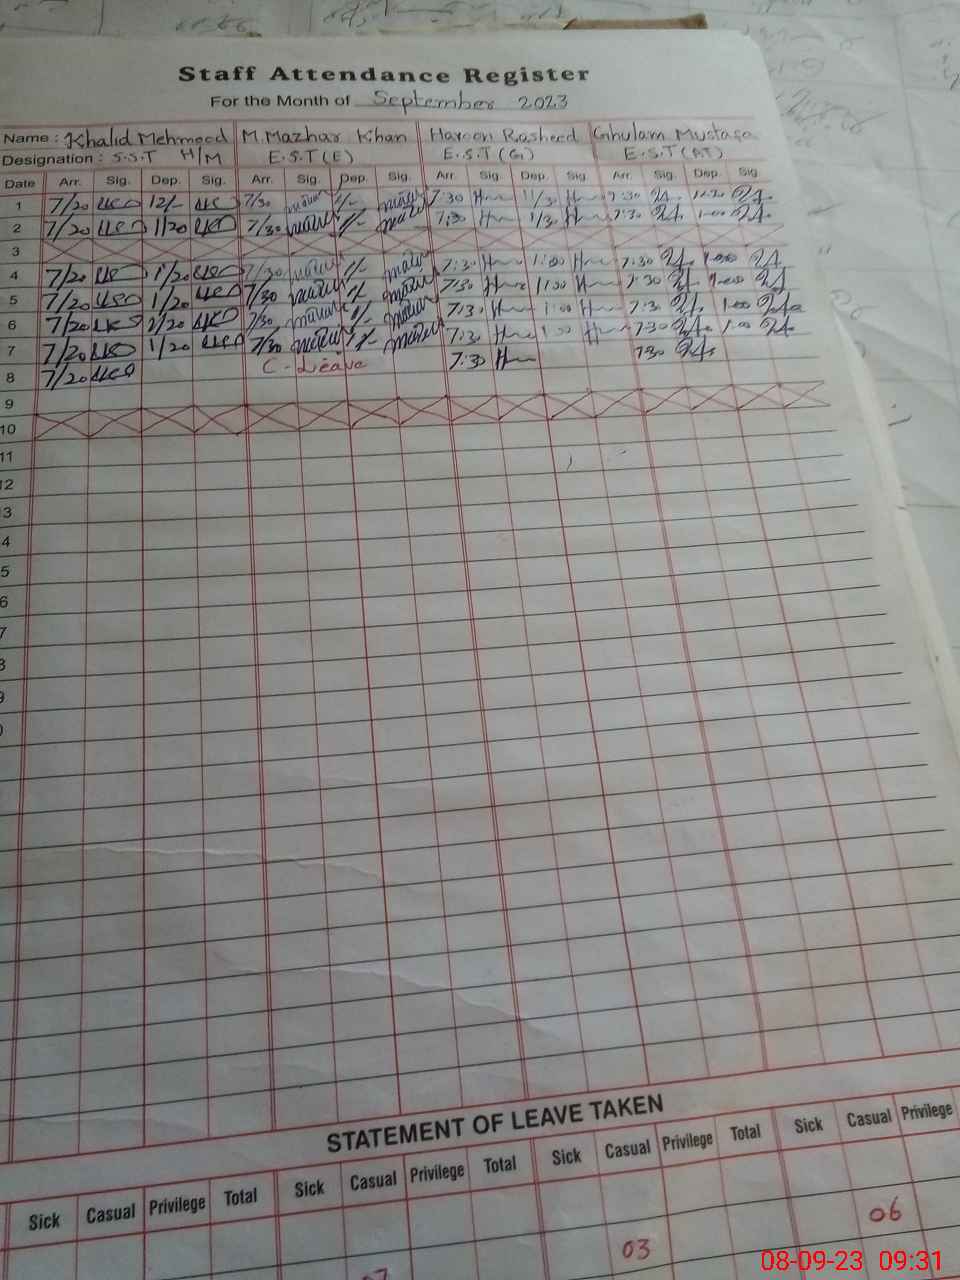 Staff Attendance Register
For the Month of September 2023
Name : Khalid Mehmood M.Mazhar Khan Haroon Rasheed Ghulam Mustafa
Designation : S.S.T H/M E.S.T(E) E.S.T(G) E.S.T(AT)
Date Arr. Sig. Dep. Sig. Arr. Sig. Dep. Sig. Arr. Sig. Dep. Sig. Arr. Sig. Dep. Sig
1 7/20 12/- 7/30 1/- 7:30 11/30 7:30
2 7/20 1/20 7/30 1/- 7:30 1/30 7:30 1:00
3
4 7/20 1/20 7/30 1/- 7:30 1:00 7:30 1:00
5 7/20 1/20 7/30 1/- 7:30 1:00 7:30 1:00
6 7/20 1/20 7/30 1/- 7:30 1:00 7:30 1:00
7 7/20 1/20 7/30 1/- 7:30 1:00 7:30 1:00
8 7/20 C-Leave 7:30 7:30
9
10
11
12
13
4
5
6
7
8
9
0
STATEMENT OF LEAVE TAKEN
Sick Casual Privilege Total Sick Casual Privilege Total Sick Casual Privilege Total Sick Casual Privilege
03 06
08-09-23 09:31